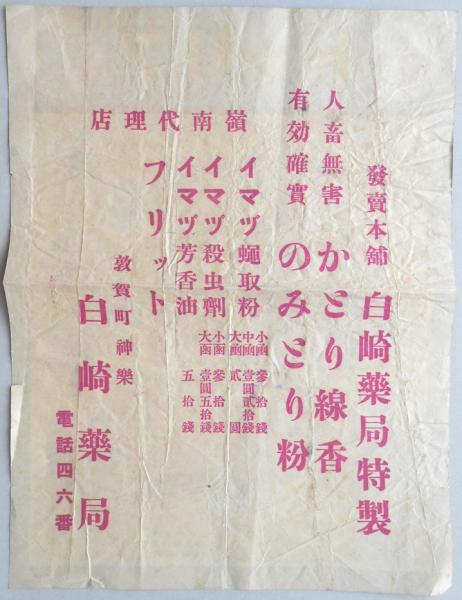 發賣本舖 白崎藥局特製
人畜無害 かとり線香
有効確實 のみとり粉
嶺南代理店
イマヅ蠅取粉
小凾 參拾錢
中凾 壹圓貳拾錢
大凾 貳圓
イマヅ殺虫劑
小函 參拾錢
大函 壹圓五拾錢
イマヅ芳香油
五拾錢
フリット
敦賀町神樂
白崎藥局
電話四六番